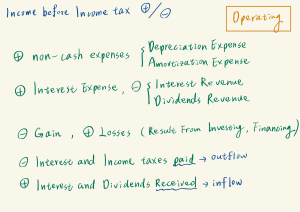 Income before Income tax ⊕/⊖
Operating
⊕ non-cash expenses { Depreciation Expense
Amortization Expense
⊕ Interest Expense, ⊖ { Interest Revenue
Dividends Revenue
⊖ Gain, ⊕ Losses (Result From Investing, Financing)
⊖ Interest and Income taxes paid → outflow
⊕ Interest and Dividends Received → inflow